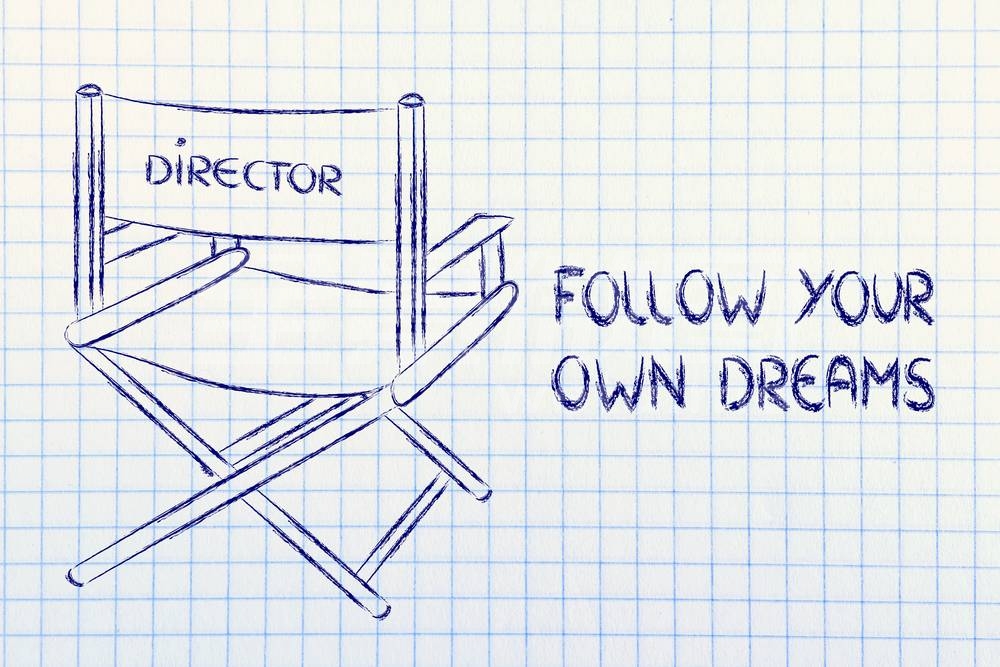 DiRECTOR
FOLLOW YOUR
OWN DREAMS